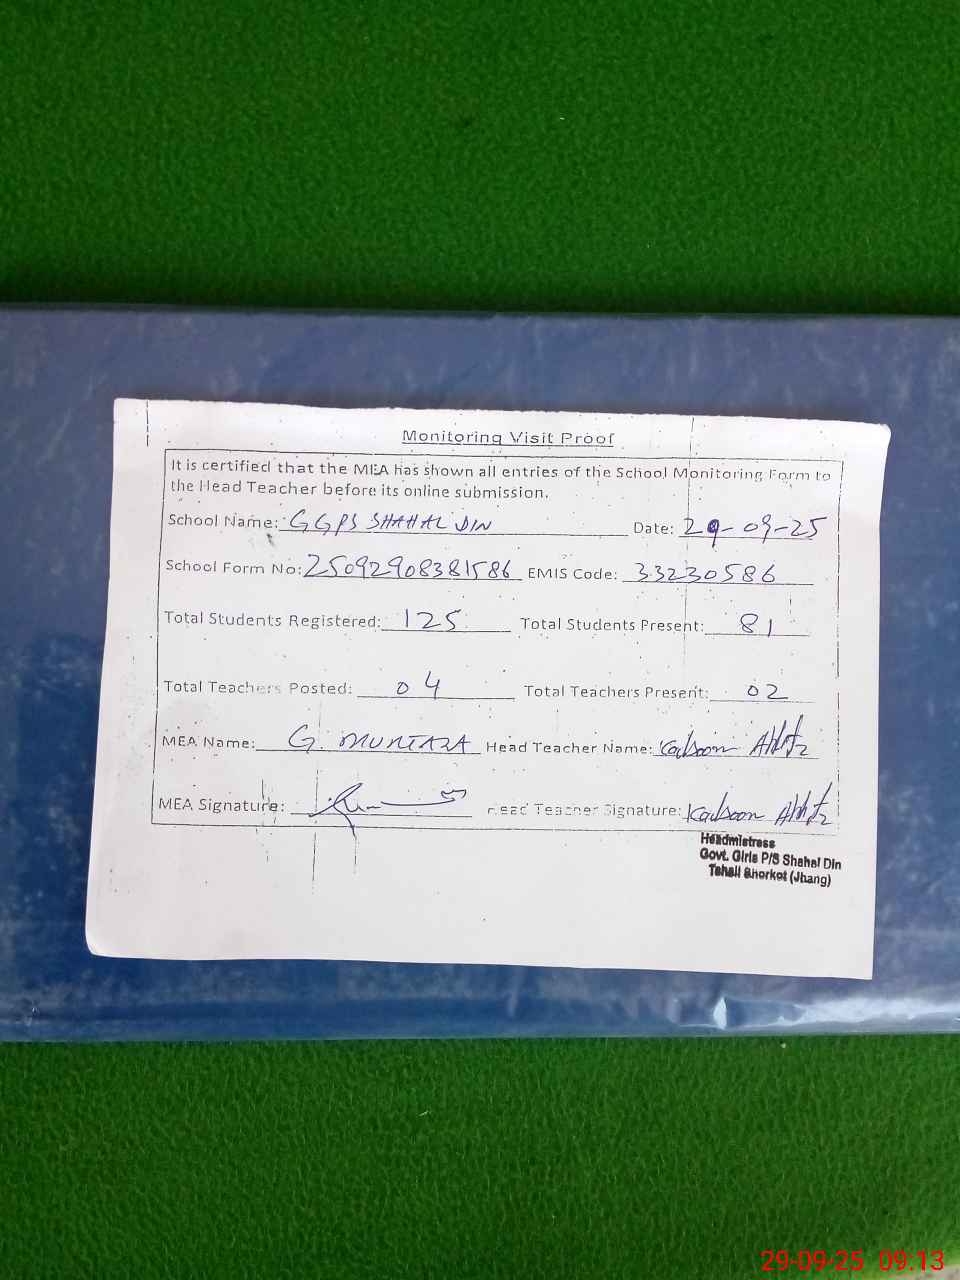 Monitoring Visit Proof
It is certified that the MEA has shown all entries of the School Monitoring Form to
the Head Teacher before its online submission.
School Name: GGPS SHAHAL DIN Date: 29-09-25
School Form No: 25092908381586 EMIS Code: 33230586
Total Students Registered: 125 Total Students Present: 81
Total Teachers Posted: 04 Total Teachers Present: 02
MEA Name: G. MURTAZA Head Teacher Name:
MEA Signature: Head Teacher Signature:
Headmistress
Govt. Girls P/S Shahal Din
Tehsil Shorkot (Jhang)
29-09-25 09:13